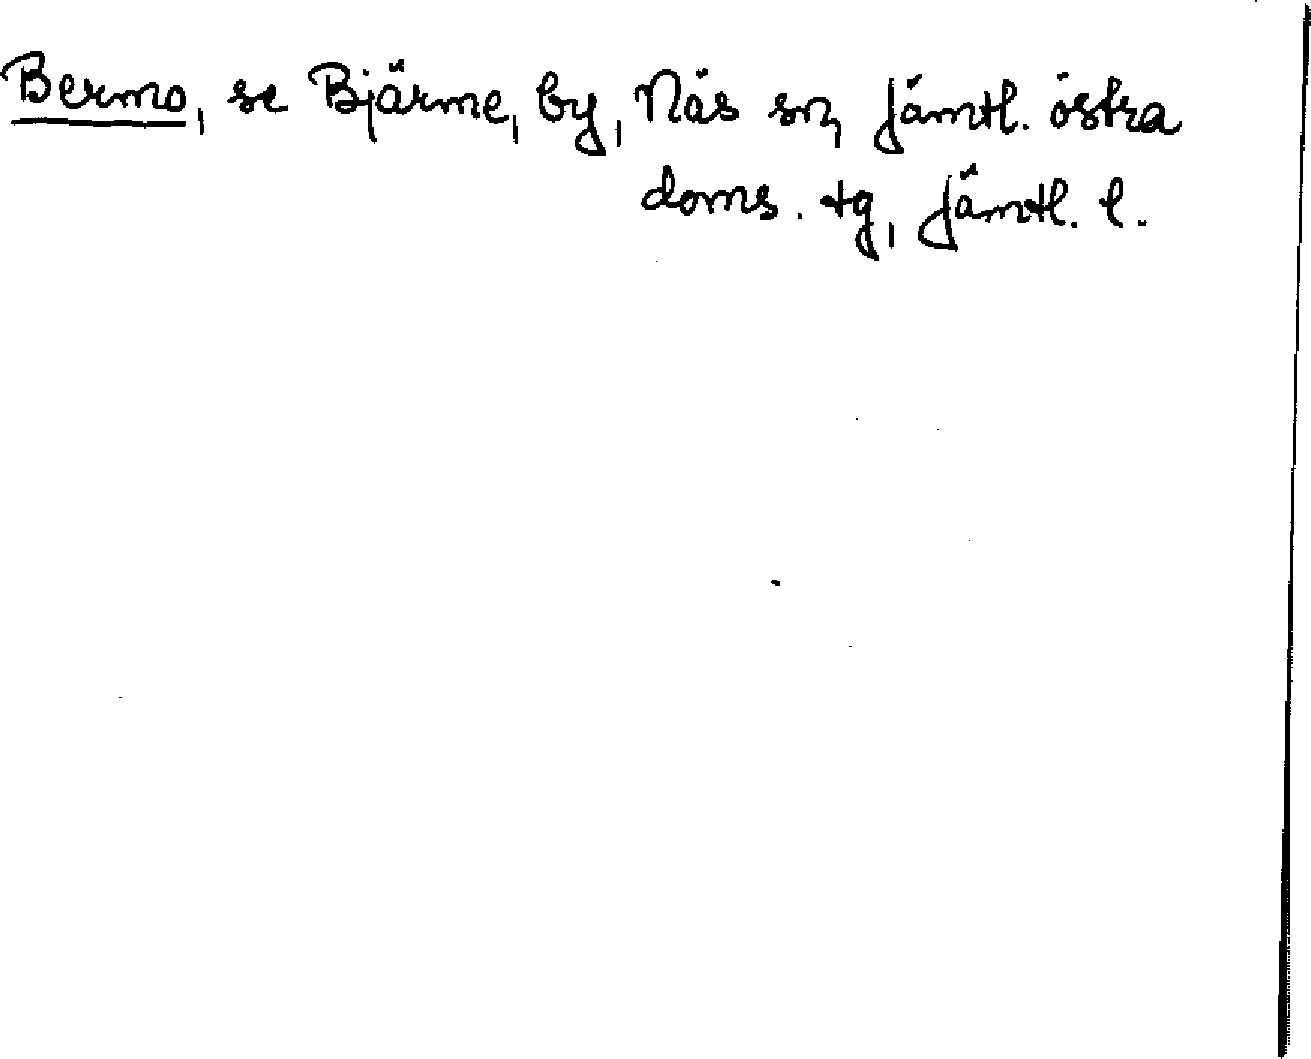 Bermo, se Bjärme, by, Näs sn, Jämtl. östra
doms. tg, Jämtl. l.